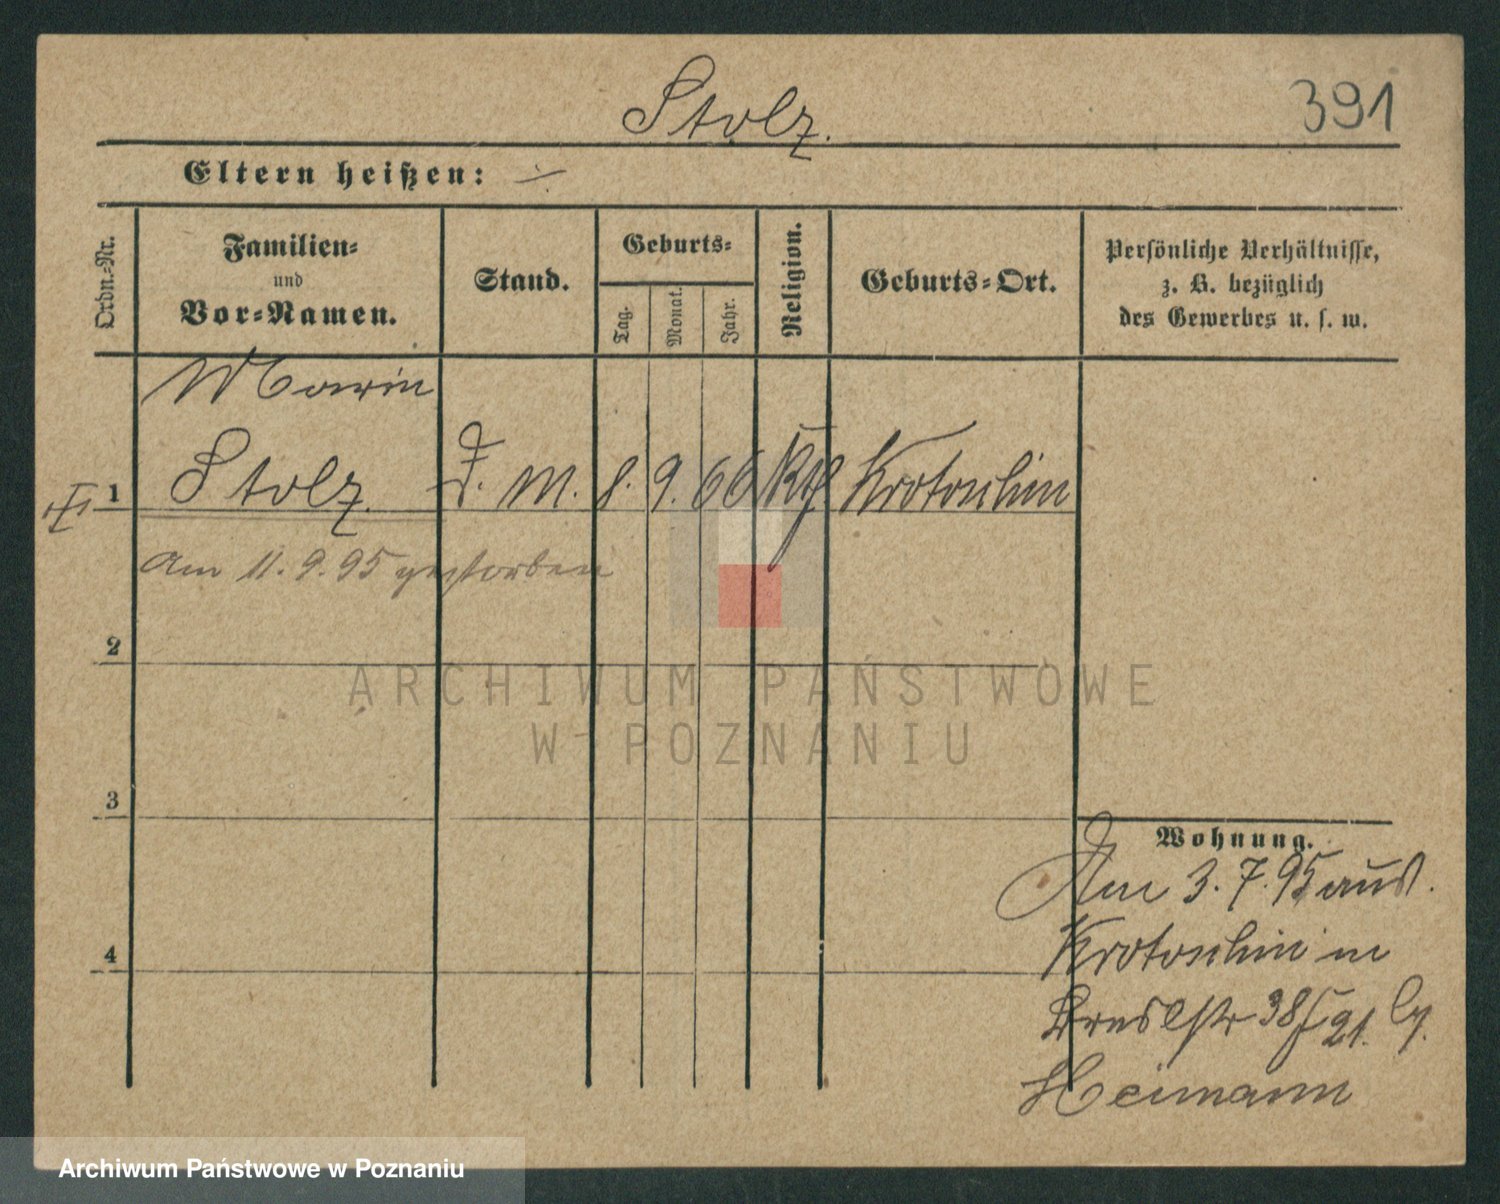 Stolz.
391
Eltern heißen: ./.
Ordn.-Nr.
Familien-
und
Vor-Namen.
Stand.
Geburts-
Tag.
Monat.
Jahr.
Religion.
Geburts-Ort.
Persönliche Verhältnisse,
z. B. bezüglich
des Gewerbes u. s. w.
Marin
1 Stolz. D. M. 8. 9. 66 Kth Krotoschin
Am 11. 9. 95 gestorben
2
3
4
Wohnung.
Am 3. 7. 95 aus
Krotoschin in
Breslstr 38 21.
Heimann
ARCHIWUM PAŃSTWOWE
W POZNANIU
Archiwum Państwowe w Poznaniu